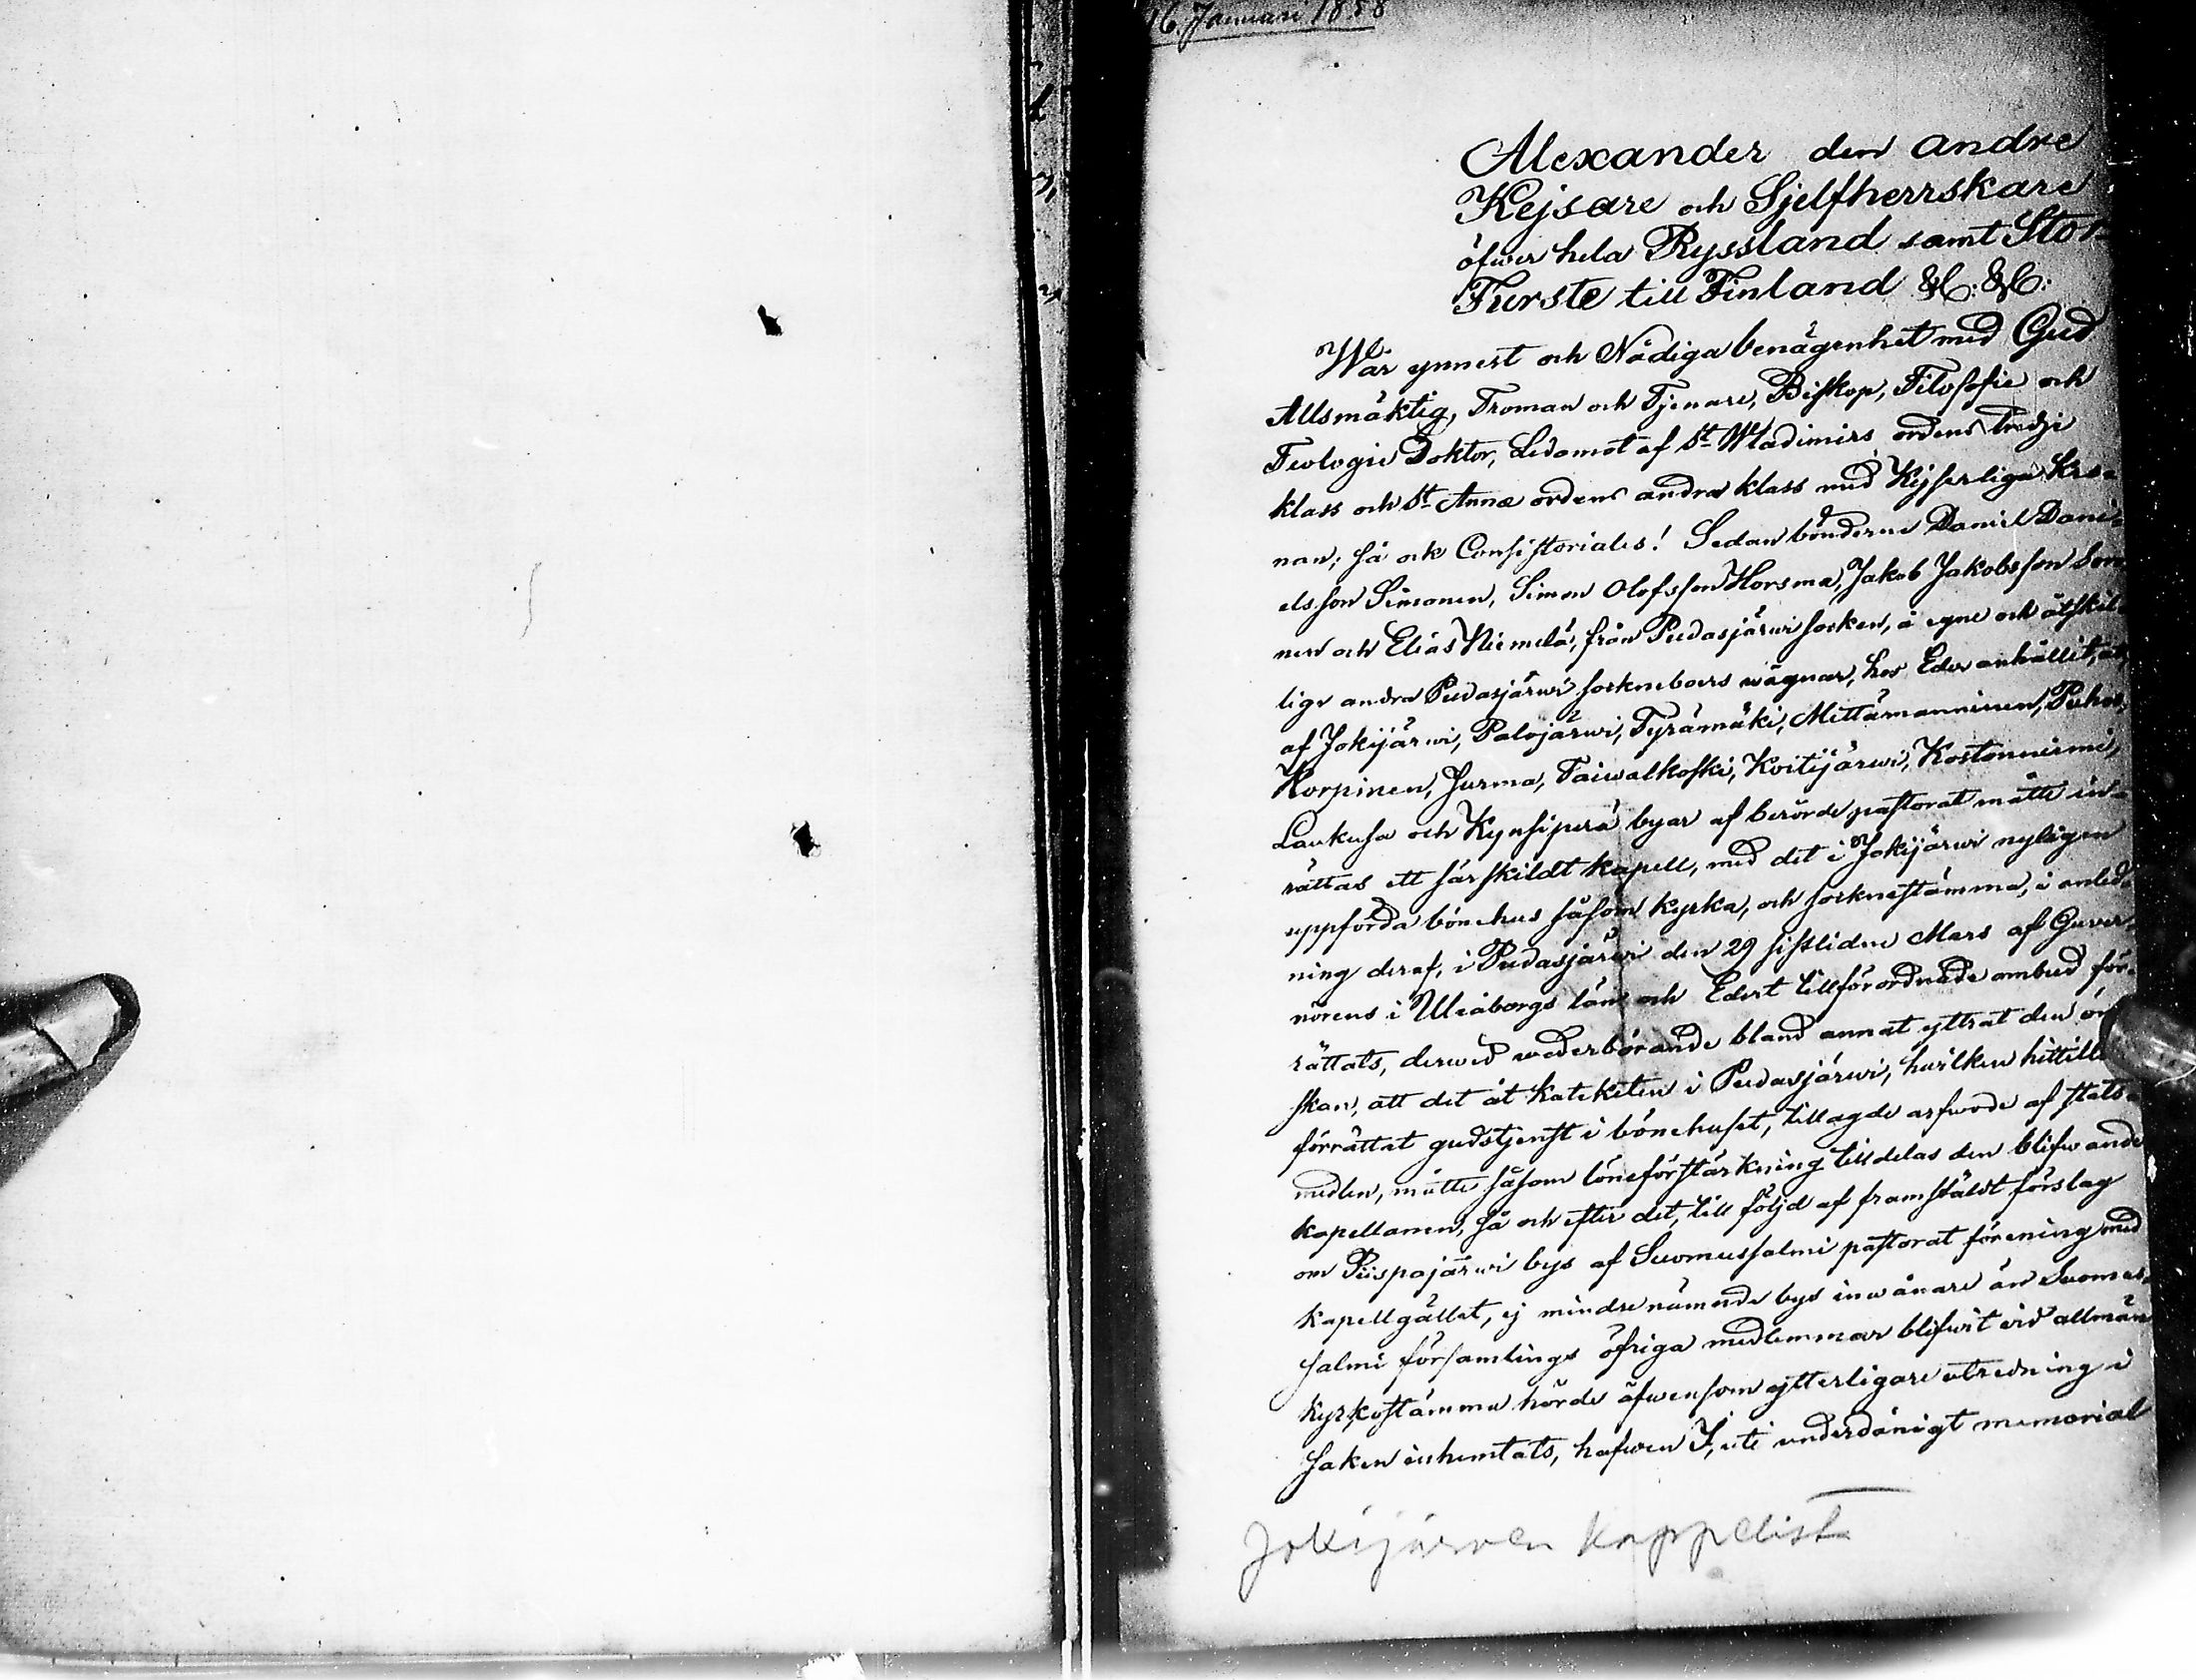 16. Januari 1858
Alexander den andre
Kejsare och Sjelfherrskare
öfwer hela Ryssland samt Stor-
Furste till Finland &C: &C:
War ynnest och Nådiga benägenhet med Gud
Allsmäktig, Troman och Tjenare, Biskop, Filosofie och
Teologie Doktor, Ledamot af St Wladimirs ordens tredje
klass och St Annæ ordens andra klass med Kejserliga kro-
nan; så ock Consistoriales! Sedan bönderne Daniel Dani-
elsson Simonen, Simon Olofsson Horsma, Jakob Jakobsson
nen och Elias Niemelä, från Pudasjärwi socken, å egne och åtskil-
lige andra Pudasjärwi sockneboers wägnar, hos Eder anhållit, att
af Jokijärwi, Palojärwi, Tyrämäki, Mittämanninen, Puhos,
Korpinen, Jurmo, Taiwalkoski, Koitijärwi, Kostonniemi,
Laukusa och Kynsiperä byar af berörde pastorat måtte in-
rättas ett särskildt kapell, med det i Jokijärwi nyligen
uppförda bönehus såsom kyrka, och socknestämma, i anled-
ning deraf, i Pudasjärwi den 29 sistlidne Mars af Guver-
nörens i Uleåborgs län och Edert tillförordnade ombud för-
rättats, derwid wederbörande bland annat yttrat den ön-
skan, att det åt kateketen i Pudasjärwi, hwilken hittills
förrättat gudstjenst i bönehuset, tillagde arfwode af stats-
medlen, måtte såsom löneförstärkning tilldelas den blifwande
kapellanen, så och efter det, till följd af framstäldt förslag
om Piispajärwi bys af Suomussalmi pastorat förening med
kapellgället, ej mindre nämnde bys inwånare än Suomus-
salmi församlings öfriga medlemmar blifwit wid allmän
kyrkostämma hörde äfwensom ytterligare utredning i
saken inhemtats, hafwen I, uti underdånigt memorial
Jokijärven kappelist